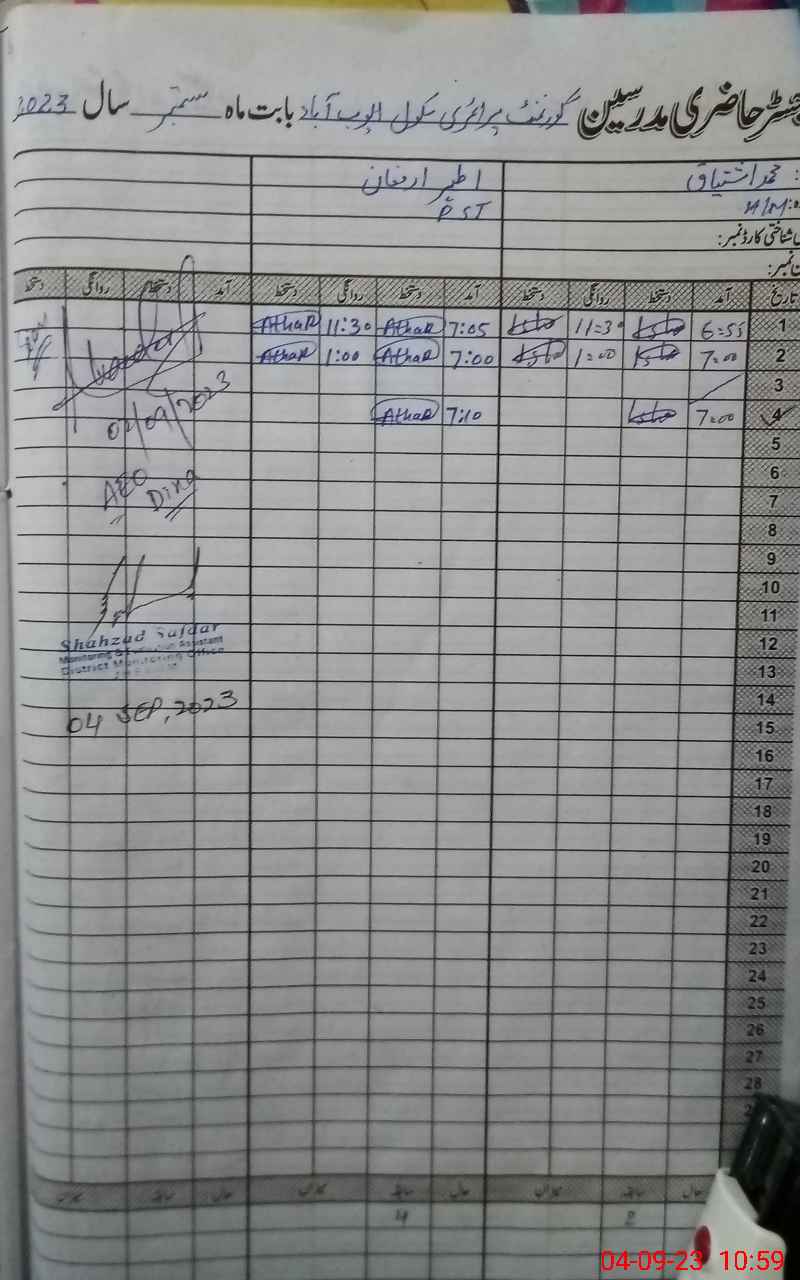 رجسٹر حاضری مدرسین گورنمنٹ پرائمری سکول ایوب آباد بابت ماہ ستمبر سال 2023
محمد اشتیاق اطہر ارمغان
H/M PST
شناختی کارڈ نمبر:
نمبر:
تاریخ آمد دستخط روانگی دستخط آمد دستخط روانگی دستخط آمد دستخط روانگی دستخط
1 6:55 11:30 7:05 Athar 11:30 Athar
2 7:00 1:00 7:00 Athar 1:00 Athar
3
4 7:00 7:10 Athar
04/09/2023
5
6
AEO
Dina
7
8
9
10
11
Shahzad Safdar
Monitoring & Evaluation Assistant
District Monitoring Office
12
13
14
04 SEP, 2023
15
16
17
18
19
20
21
22
23
24
25
26
27
28
حال سابقہ میزان حال سابقہ میزان حال سابقہ میزان
04-09-23 10:59